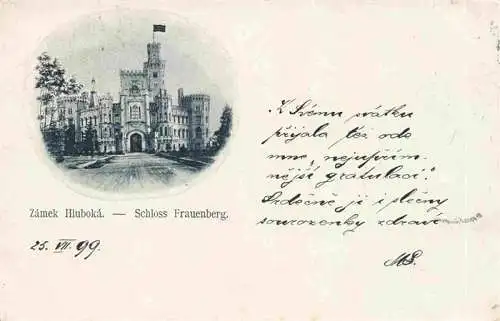 Zámek Hluboká. — Schloss Frauenberg.
25. VII. 99.
"K Svému svátku
přijala též ode
mne „nejupřím-
nější gratulaci."
Srdečně ji i slečny
sourozenky zdraví
MS.